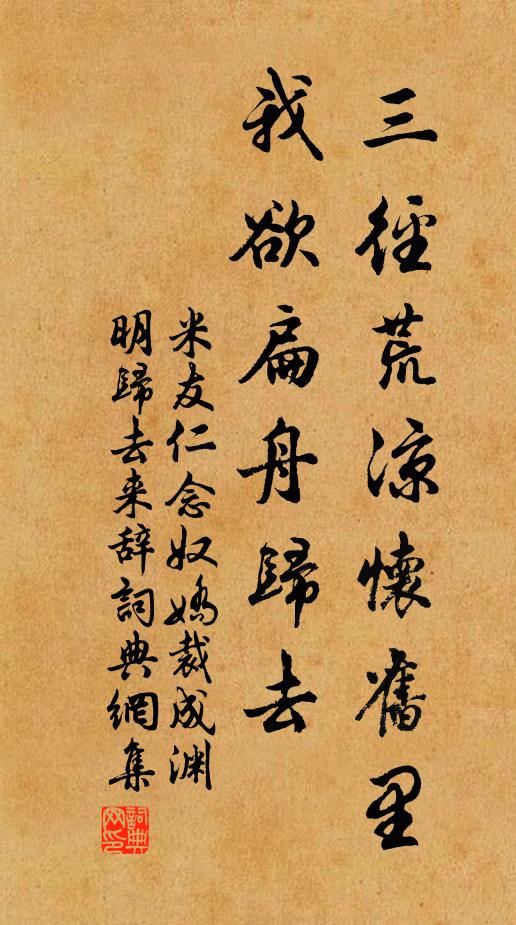 三徑荒凉懷舊里
我欲扁舟歸去
米友仁念奴嬌裁成渊
明歸去来辞詞典網集
詞典
网印